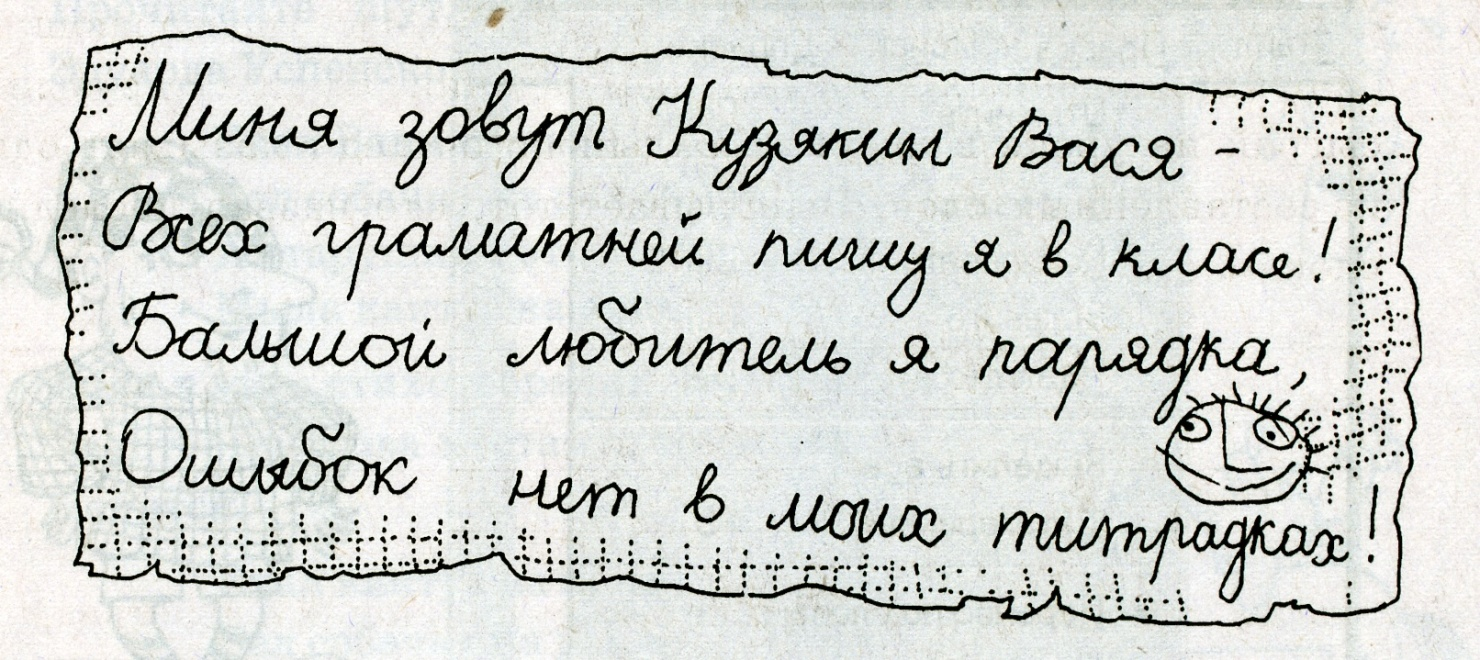 Миня зовут Кузякин Вася –
Всех граматней пишу я в класе!
Балышой любитель я парядка,
Ошыбок нет в моих титрадках!